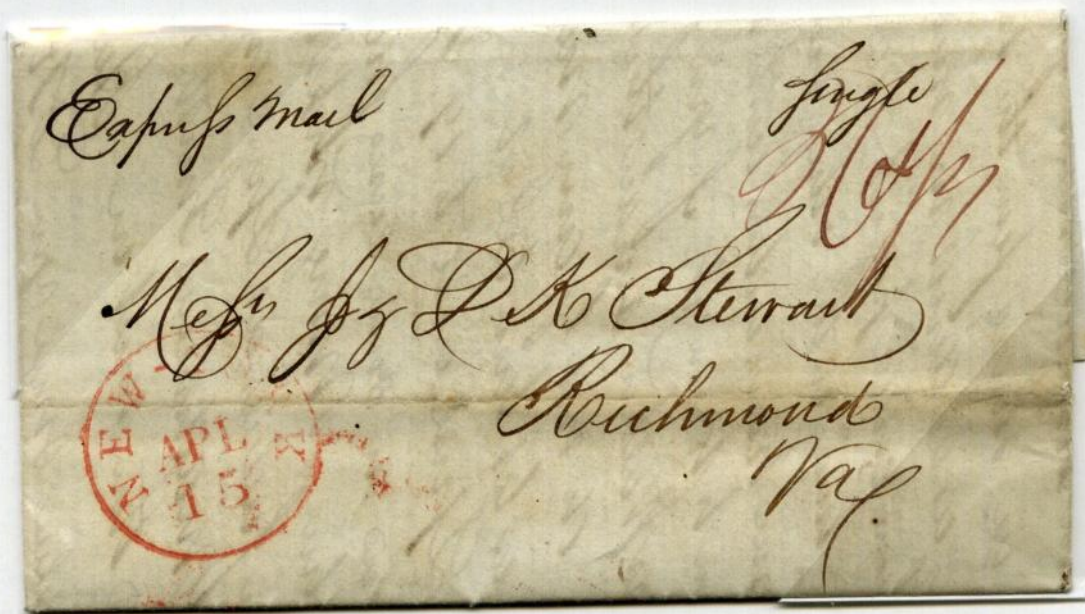 Express Mail
Single
Messrs J & D K Stewart
Richmond
Va
NEW-YORK
APL
15